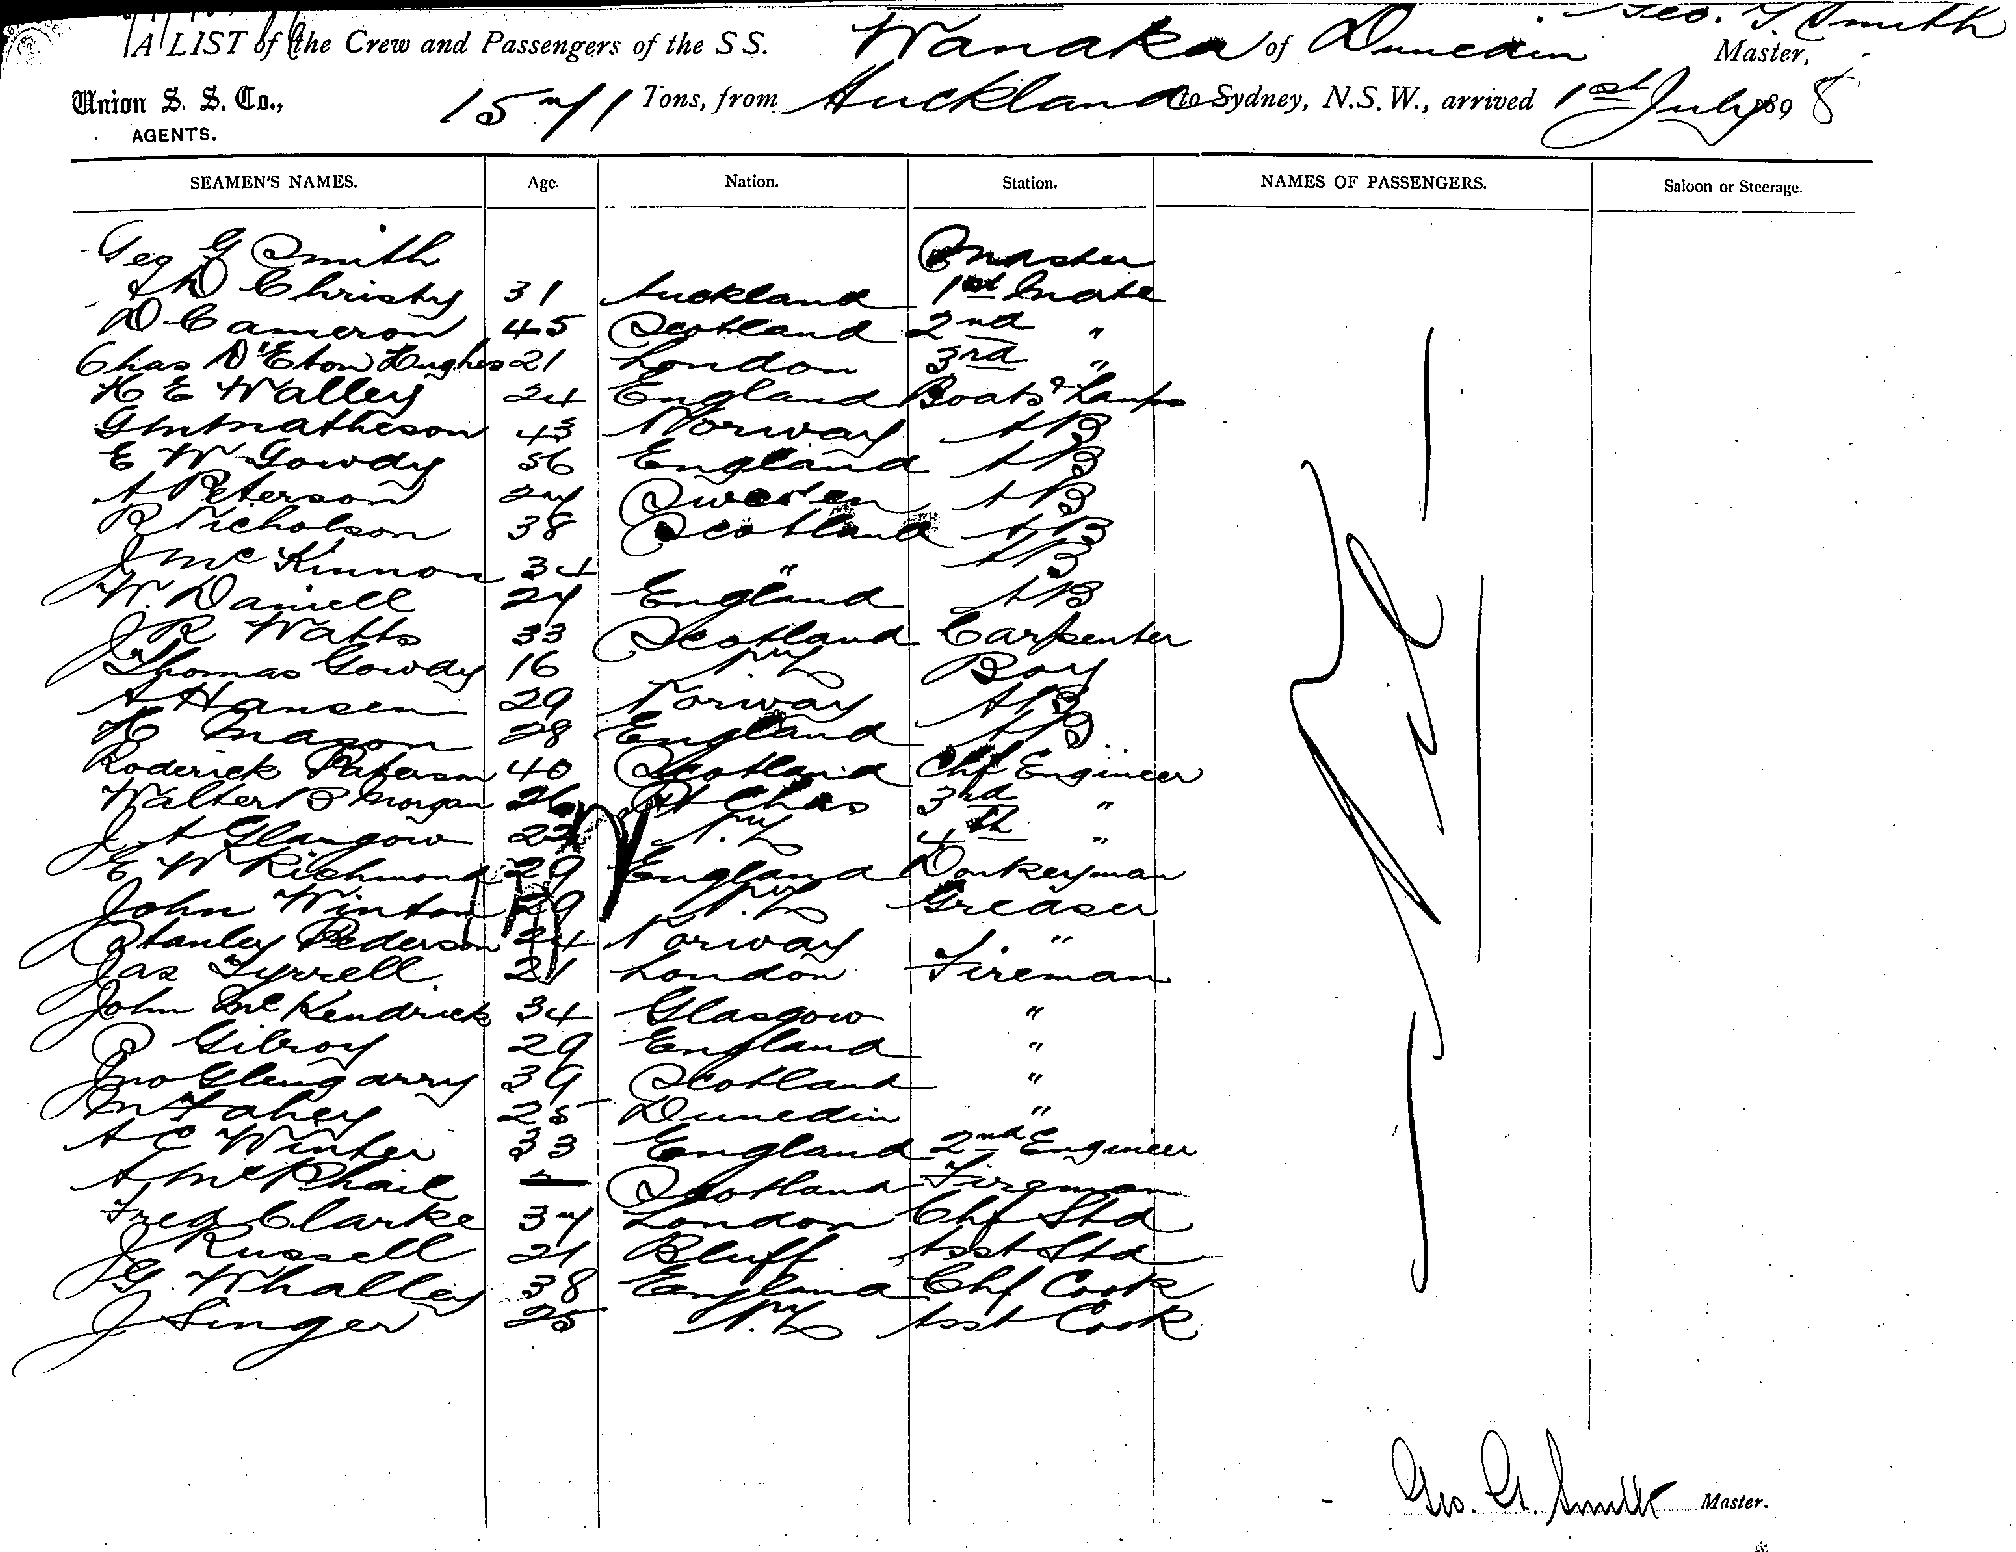 A LIST of the Crew and Passengers of the S S. Wanaka of Dunedin Geo. G. Smith Master,
Union S. S. Co., AGENTS. 1571 Tons, from Auckland to Sydney, N.S.W., arrived 1st July 1898
SEAMEN'S NAMES. Age. Nation. Station. NAMES OF PASSENGERS. Saloon or Steerage.
Geo G Smith Master
Christy 31 Auckland 1st Mate
D Cameron 45 Scotland 2nd "
Chas D'Eton Hughes 21 London 3rd "
H E Walley 24 England Boats & Lamps
G M Matheson 43 Norway AB
E W Gowdy 56 England AB
A Peterson 27 Sweden AB
R Nicholson 38 Scotland AB
J McKinnon 34 " AB
W. Daniell 27 England AB
J R Watts 33 Scotland Carpenter
Thomas Gowdy 16 N.Z Boy
A Hansen 29 Norway AB
H Mason 28 England AB
Roderick Paterson 40 Scotland Chf Engineer
Walter S Morgan 26 Pt Chas 3rd "
J A Glasgow 22 N.Z 4th "
E W Richmond 29 England Donkeyman
John Winton 29 N.Z Greaser
Stanley Pederson 24 Norway "
Jas Tyrrell 21 London Fireman
John McKendrick 34 Glasgow "
P Gilroy 29 England "
Jno Glengarry 39 Scotland "
M Fahey 25 Dunedin "
A C Winter 33 England 2nd Engineer
A McPhail – Scotland Fireman
Fred Clarke 37 London Chf Std
J Russell 21 Bluff Asst Std
G. Whalley 38 England Chf Cook
J Singer 25 N.Z Asst Cook
Nil
Geo. G. Smith Master.